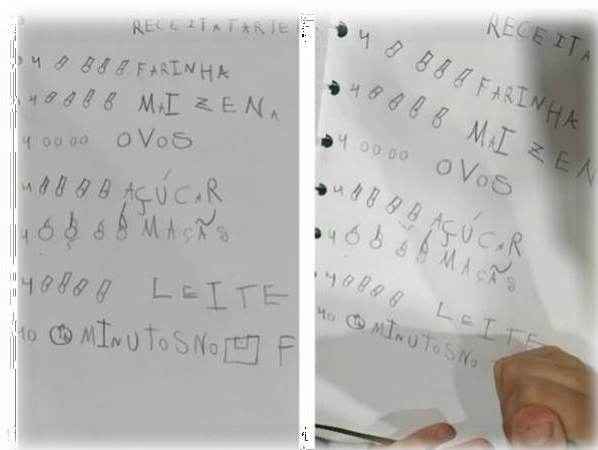 RECEITA TARTE
4 FARINHA
4 MAIZENA
4 OVOS
4 AÇÚCAR
4 MAÇÃS
4 LEITE
40 MINUTOS NO F
RECEITA
4 FARINHA
4 MAIZEN
4 OVOS
4 AÇÚCAR
4 MAÇÃS
4 LEITE
40 MINUTOS NO